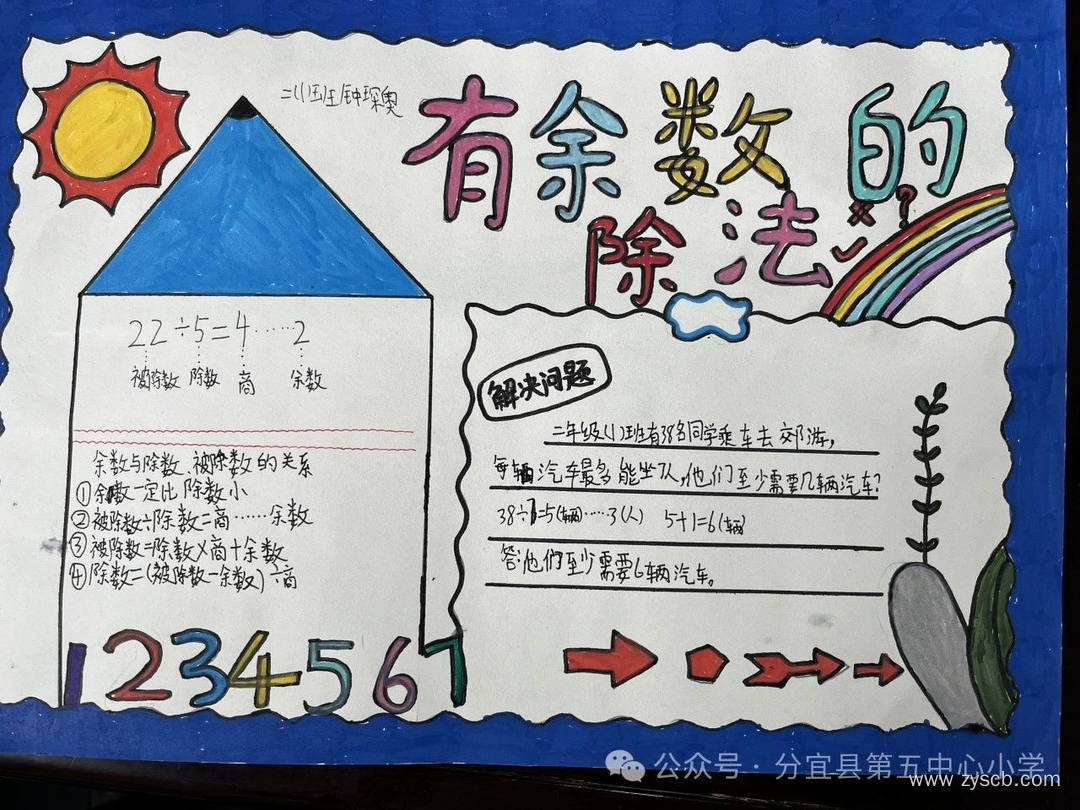 二(1)班 钟琛奥
有余数的
除法
× ?
✓
22÷5=4……2
被除数 除数 商 余数
余数与除数、被除数的关系
①余数一定比除数小
②被除数÷除数=商……余数
③被除数=除数×商+余数
④除数=(被除数-余数)÷商
1234567
解决问题
二年级(1)班有38名同学乘车去郊游,
每辆汽车最多能坐7人,他们至少需要几辆汽车?
38÷7=5(辆)……3(人) 5+1=6(辆)
答:他们至少需要6辆汽车。
公众号·分宜县第五中心小学
www.zyscb.com